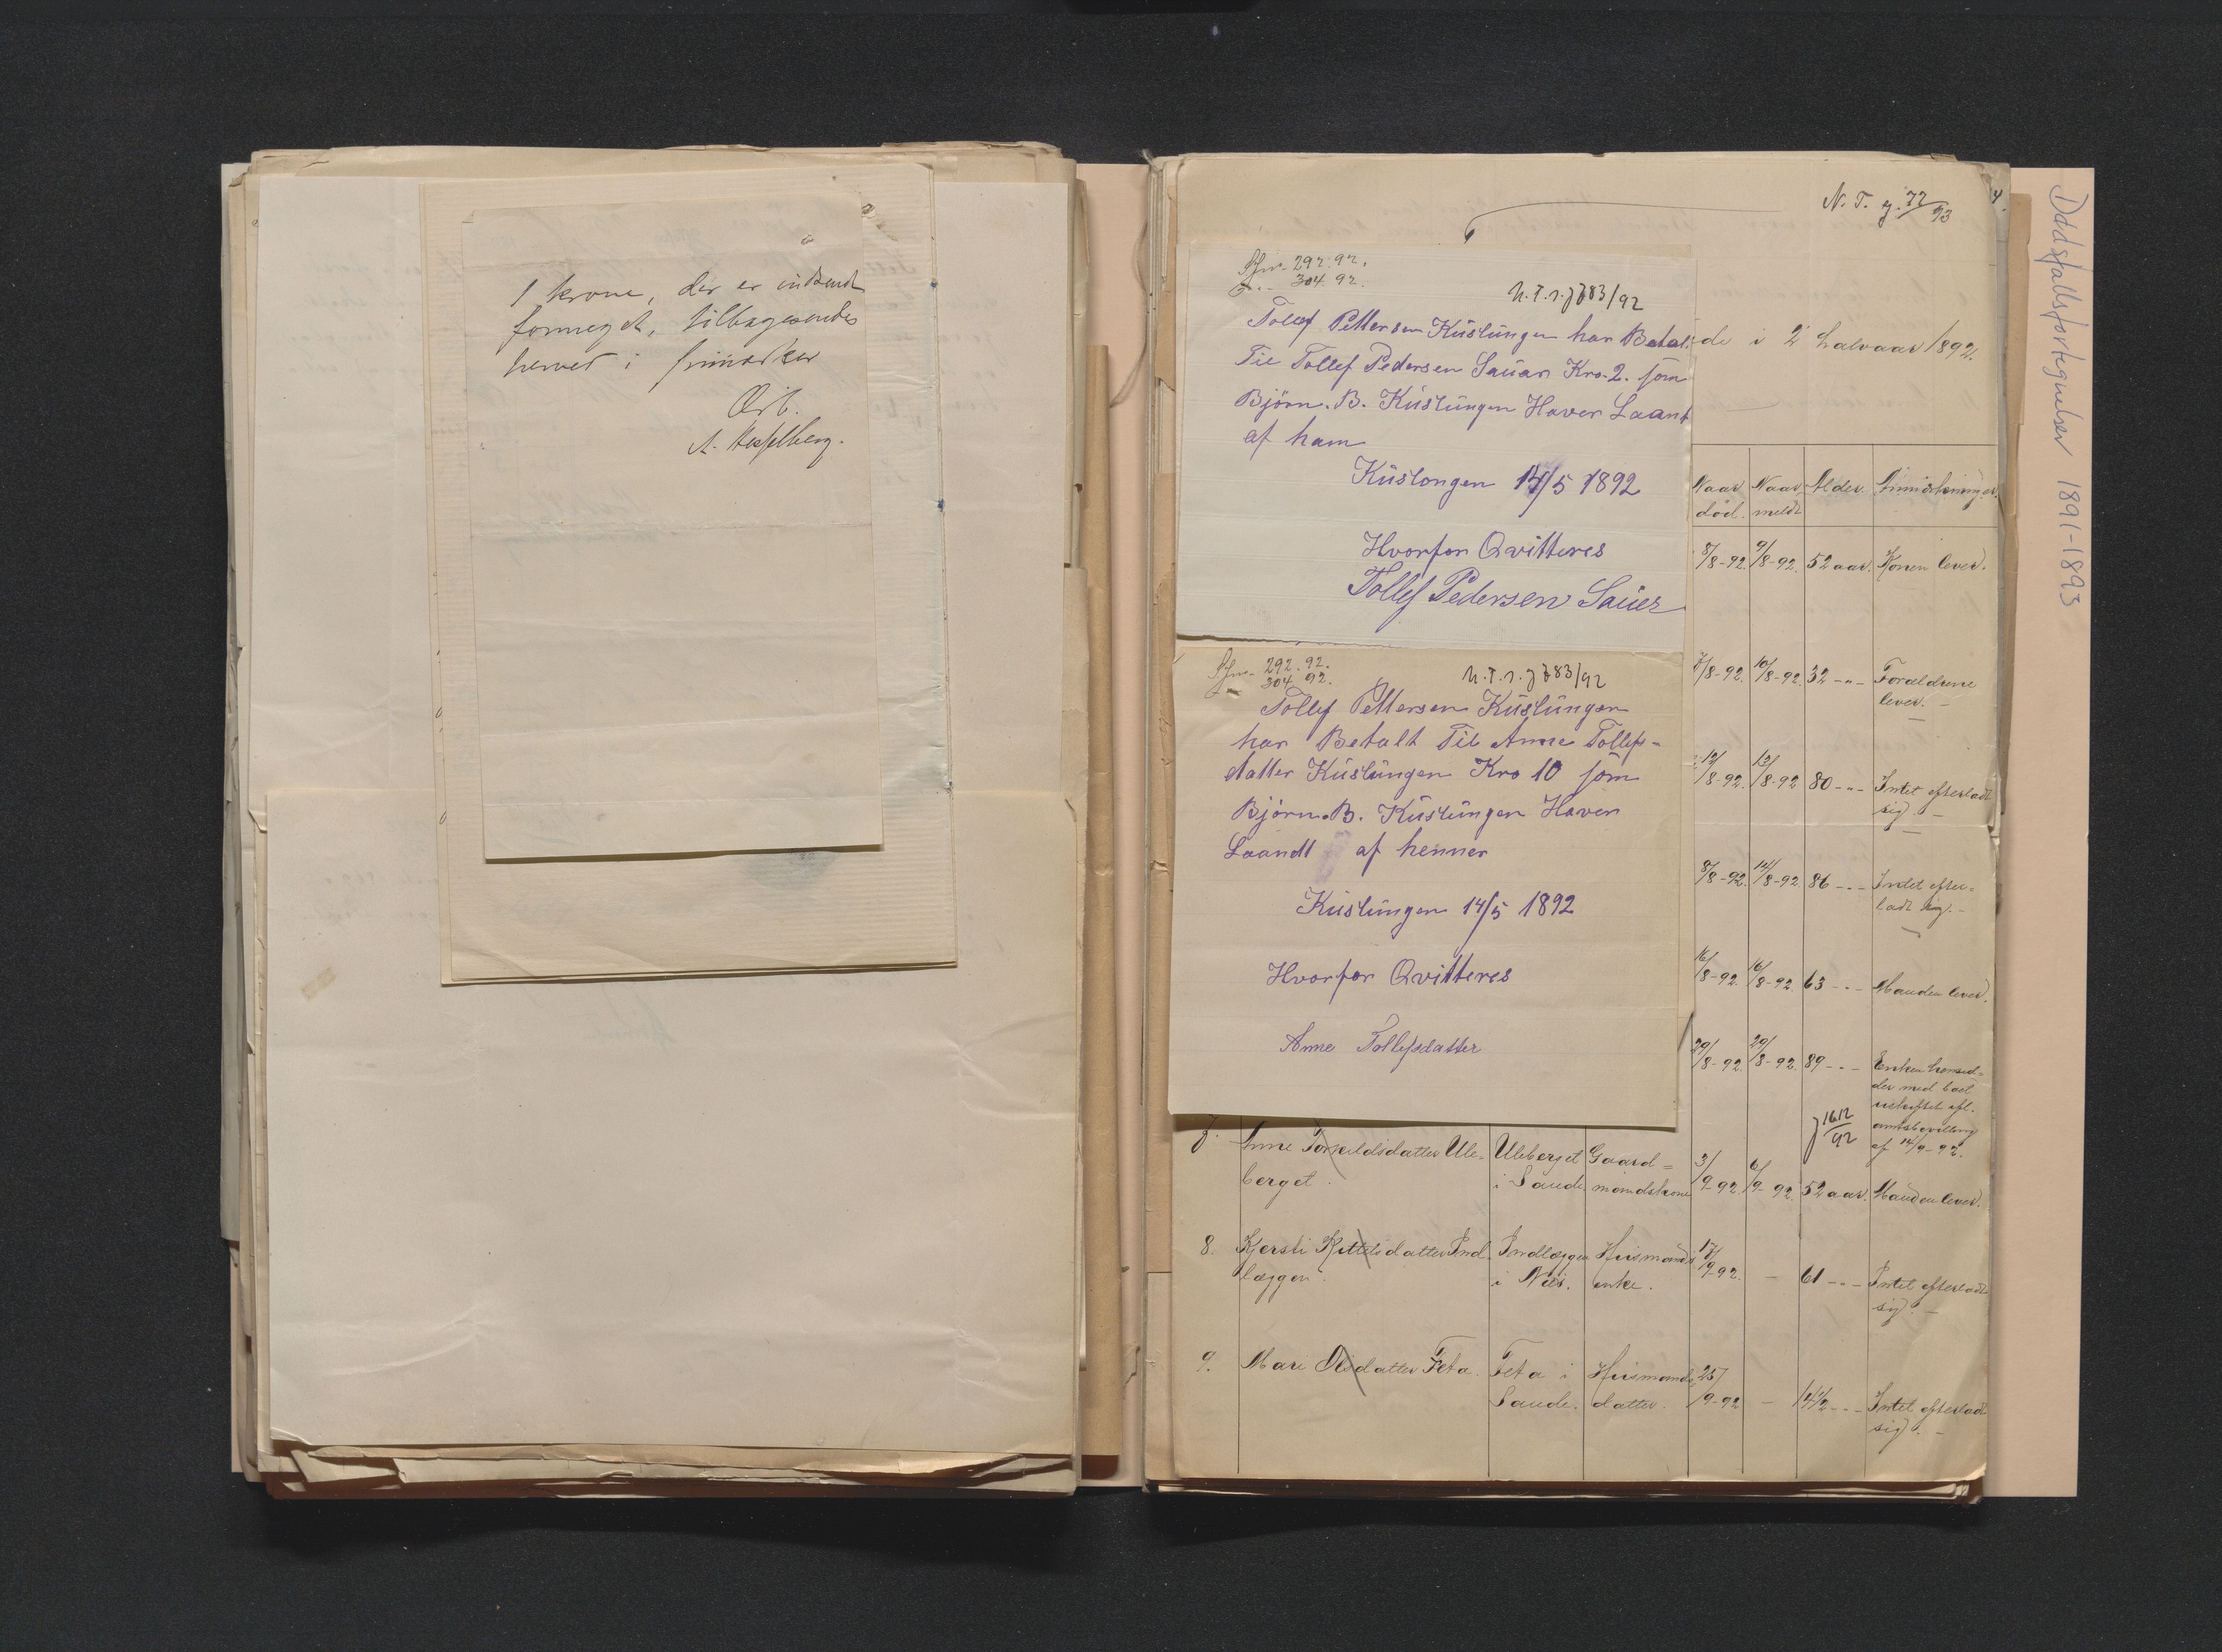 1 krone, der er indsendt
formeget, tilbagesendes
herved i frimærker
Ærb.
A. Hesselberg.
N. T. j. 72/93
4.
292. 92.
304. 92.
N. T. s. j 783/92
Tollef Pettersen Küslüngen har Betal
de i 2 halvaar 1892.
Til Tollef Pedersen Sauar Kro. 2. som
Björn. B. Küslüngen Haver Laant
af ham
Küslongen 14/5 1892
Hvorfor Qvitteres
Tollef Pedersen Sauer
292. 92.
304. 92.
N. T. s. j 783/92
Tollef Pettersen Küslüngen
har Betalt Til Anne Tollefs-
datter Küslüngen Kro 10 som
Björn. B. Küslüngen Haver
Laandt af henner
Küslüngen 14/5 1892
Hvorfor Qvitteres
Anne Tollefsdatter
Naar død. Naar meldt Alder. Anmærkninger.
8/8-92. 9/8-92. 52 aar. Konen lever.
7/8-92. 10/8-92. 32 -"- Forældrene
lever. -
12/8-92. 12/8-92 80 -"- Intet efterladt
sig. -
8/8-92. 14/8-92 86 -"- Intet efter-
ladt sig. -
16/8-92. 16/8-92. 63 -"- Manden lever.
29/8-92. 29/8-92. 89 -"- Enken hensid-
der med boet
uskiftet efl.
amtsbevilling
af 14/9-92.
j 1612/92
7. Anne Torkeldsdatter Ule- Uleberget Gaard= 3/9-92 6/9-92. 52 aar. Manden lever.
berget. i Saude mandskone
8. Kjersti Kittelsdatter Ind- Indlæggen Husmands 17/9-92. - 61 -"- Intet efterladt
læggen. i Næs. enke. sig. -
9. Mari Olsdatter Feta. Feta i Husmands 25/9-92 - 14 1/2 -"- Intet efterladt
Saude. datter. sig. -
Dødsfallsfortegnelser 1891-1893